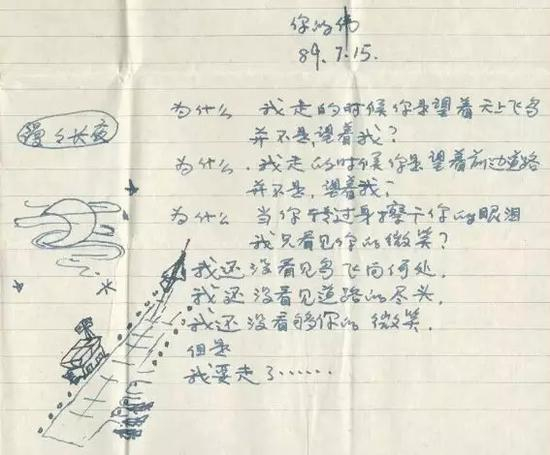 你的伟
89.7.15.
漫々长夜
为什么 我走的时候你是望着天上飞鸟
并不是,望着我?
为什么.我走的时候你是望着前边道路
并不是,望着我?
为什么 当你转过身擦下你的眼泪
我只看见你的微笑?
我还没看见鸟飞向何处.
我还没看见道路的尽头.
我还没看够你的微笑.
但是
我要走了……